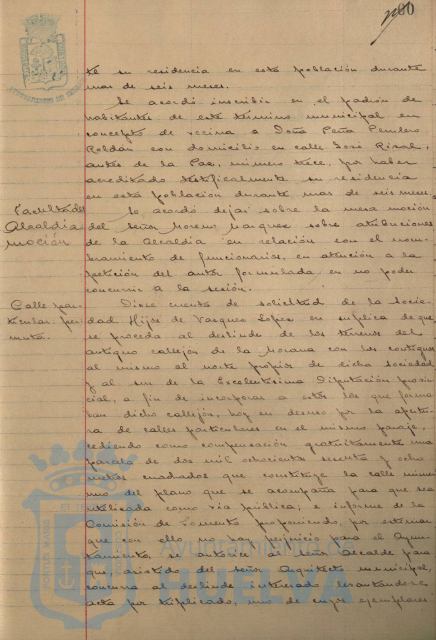 80
te su residencia en esta población durante
mas de seis meses.
Se acordó inscribir en el padrón de
habitantes de este término municipal en
concepto de vecina a Doña Peña Penlero
Roldán con domicilio en calle José Rizal,
antes de la Paz, número trece, por haber
acreditado testificalmente su residencia
en esta población durante mas de seis meses.
Facultades
Alcaldia
moción
Se acordó dejar sobre la mesa moción
del Señor Moreno Marquez sobre atribuciones
de la Alcaldia en relación con el nom-
bramiento de funcionarios, en atención a la
petición del autor formulada en no poder
concurrir a la sesión.
Calle par-
ticular per-
muta.
Diose cuenta de solicitud de la Socie-
dad Hijos de Vazquez Lopez en suplica de que
se proceda al deslinde de los terrenos del
antiguo callejón de la Morana con los contiguos
al mismo al norte propios de dicha sociedad
y al sur de la Excelentisima Diputación provin-
cial, a fin de incorporar a estos los que forma-
ban dicho callejón, hoy en desuso por la apertu-
ra de calles particulares en el mismo paraje,
cediendo como compensación gratuitamente una
parcela de dos mil ochocientos sesenta y ocho
metros cuadrados que constituye la calle núme-
ro uno del plano que se acompaña para que sea
utilizada como via publica; e informe de la
Comisión de Fomento proponiendo, por estimar
que con ello no hay perjuicio para el Ayun-
tamiento, se autorice al señor Alcalde para
que, asistido del señor Arquitecto municipal,
concurra al deslinde interesado levantandose
acta por triplicado, uno de cuyos ejemplares
Ayuntamiento de
HUELVA